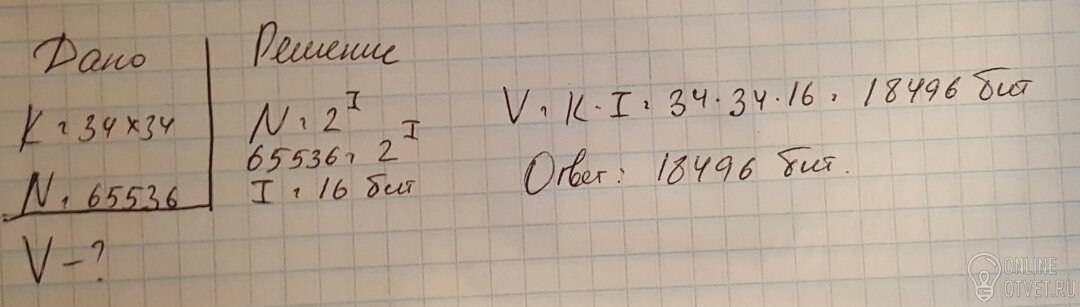 Дано
K = 34×34
N = 65536
V - ?
Решение
N = 2^I
65536 = 2^I
I = 16 бит
V = K · I = 34 · 34 · 16 = 18496 бит
Ответ: 18496 бит.
ONLINE
OTVET.RU